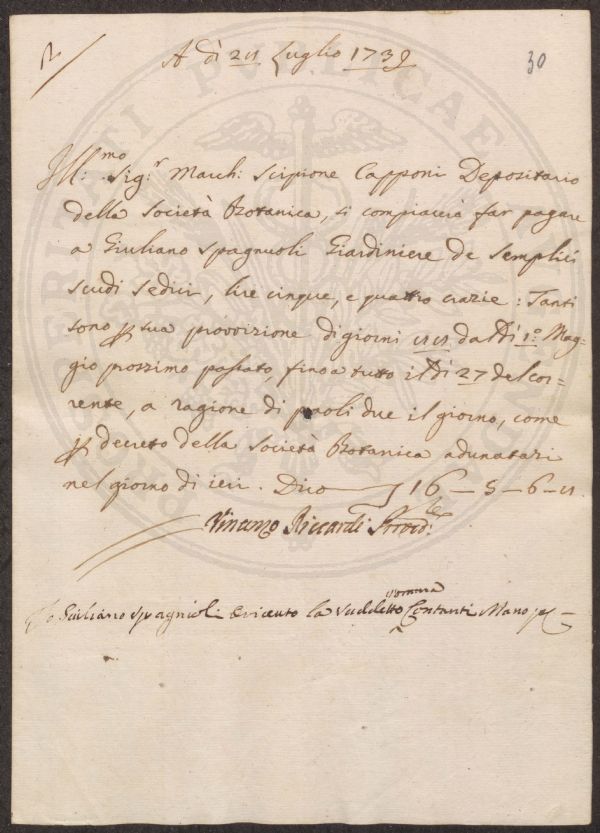 30
A dì 24 Luglio 1739
Ill:mo Sig:r March: Scipione Capponi Depositario
della Società Botanica, si compiacerà far pagare
a Giuliano Spagnuoli Giardiniere de Semplici
scudi sedici, lire cinque, e quattro crazie: Tanti
sono p sua provvizione di giorni dal Dì 1:o Mag-
gio prossimo passato, fino a tutto il Dì 27 del cor-
rente, a ragione di paoli due il giorno, come
p decreto della Società Botanica adunatasi
nel giorno di ieri. Dico 16-5-6-
Vincenzo Riccardi Provd:re
Io Giuliano Spagnioli ò riceuto la suddetto somma Contanti Mano
PROSPERITATI PVBLICAE